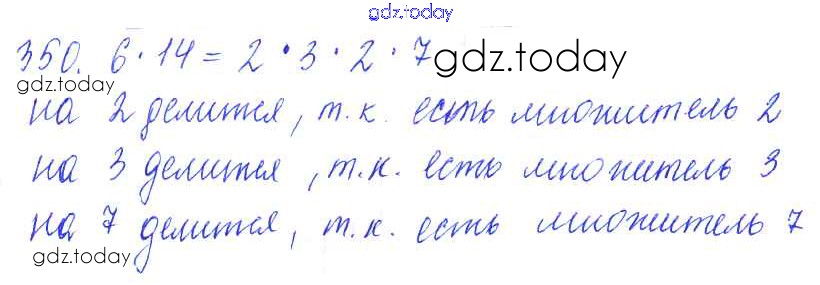 gdz.today
350. 6 · 14 = 2 · 3 · 2 · 7 gdz.today
gdz.today
на 2 делится, т.к. есть множитель 2
на 3 делится, т.к. есть множитель 3
на 7 делится, т.к. есть множитель 7
gdz.today